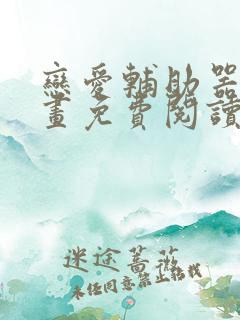 戀愛輔助器
畫免費閱讀
迷途薔薇
未经同意禁止转载